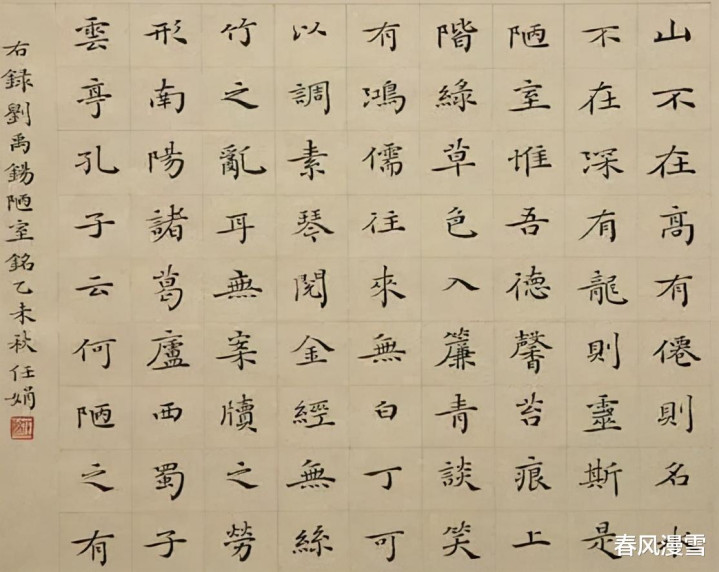 山不在高有僊則名水
不在深有龍則靈斯是
陋室惟吾德馨苔痕上
階綠草色入簾青談笑
有鴻儒往來無白丁可
以調素琴閱金經無絲
竹之亂耳無案牘之勞
形南陽諸葛廬西蜀子
雲亭孔子云何陋之有
右録劉禹錫陋室銘乙未秋任娟
春风漫雪